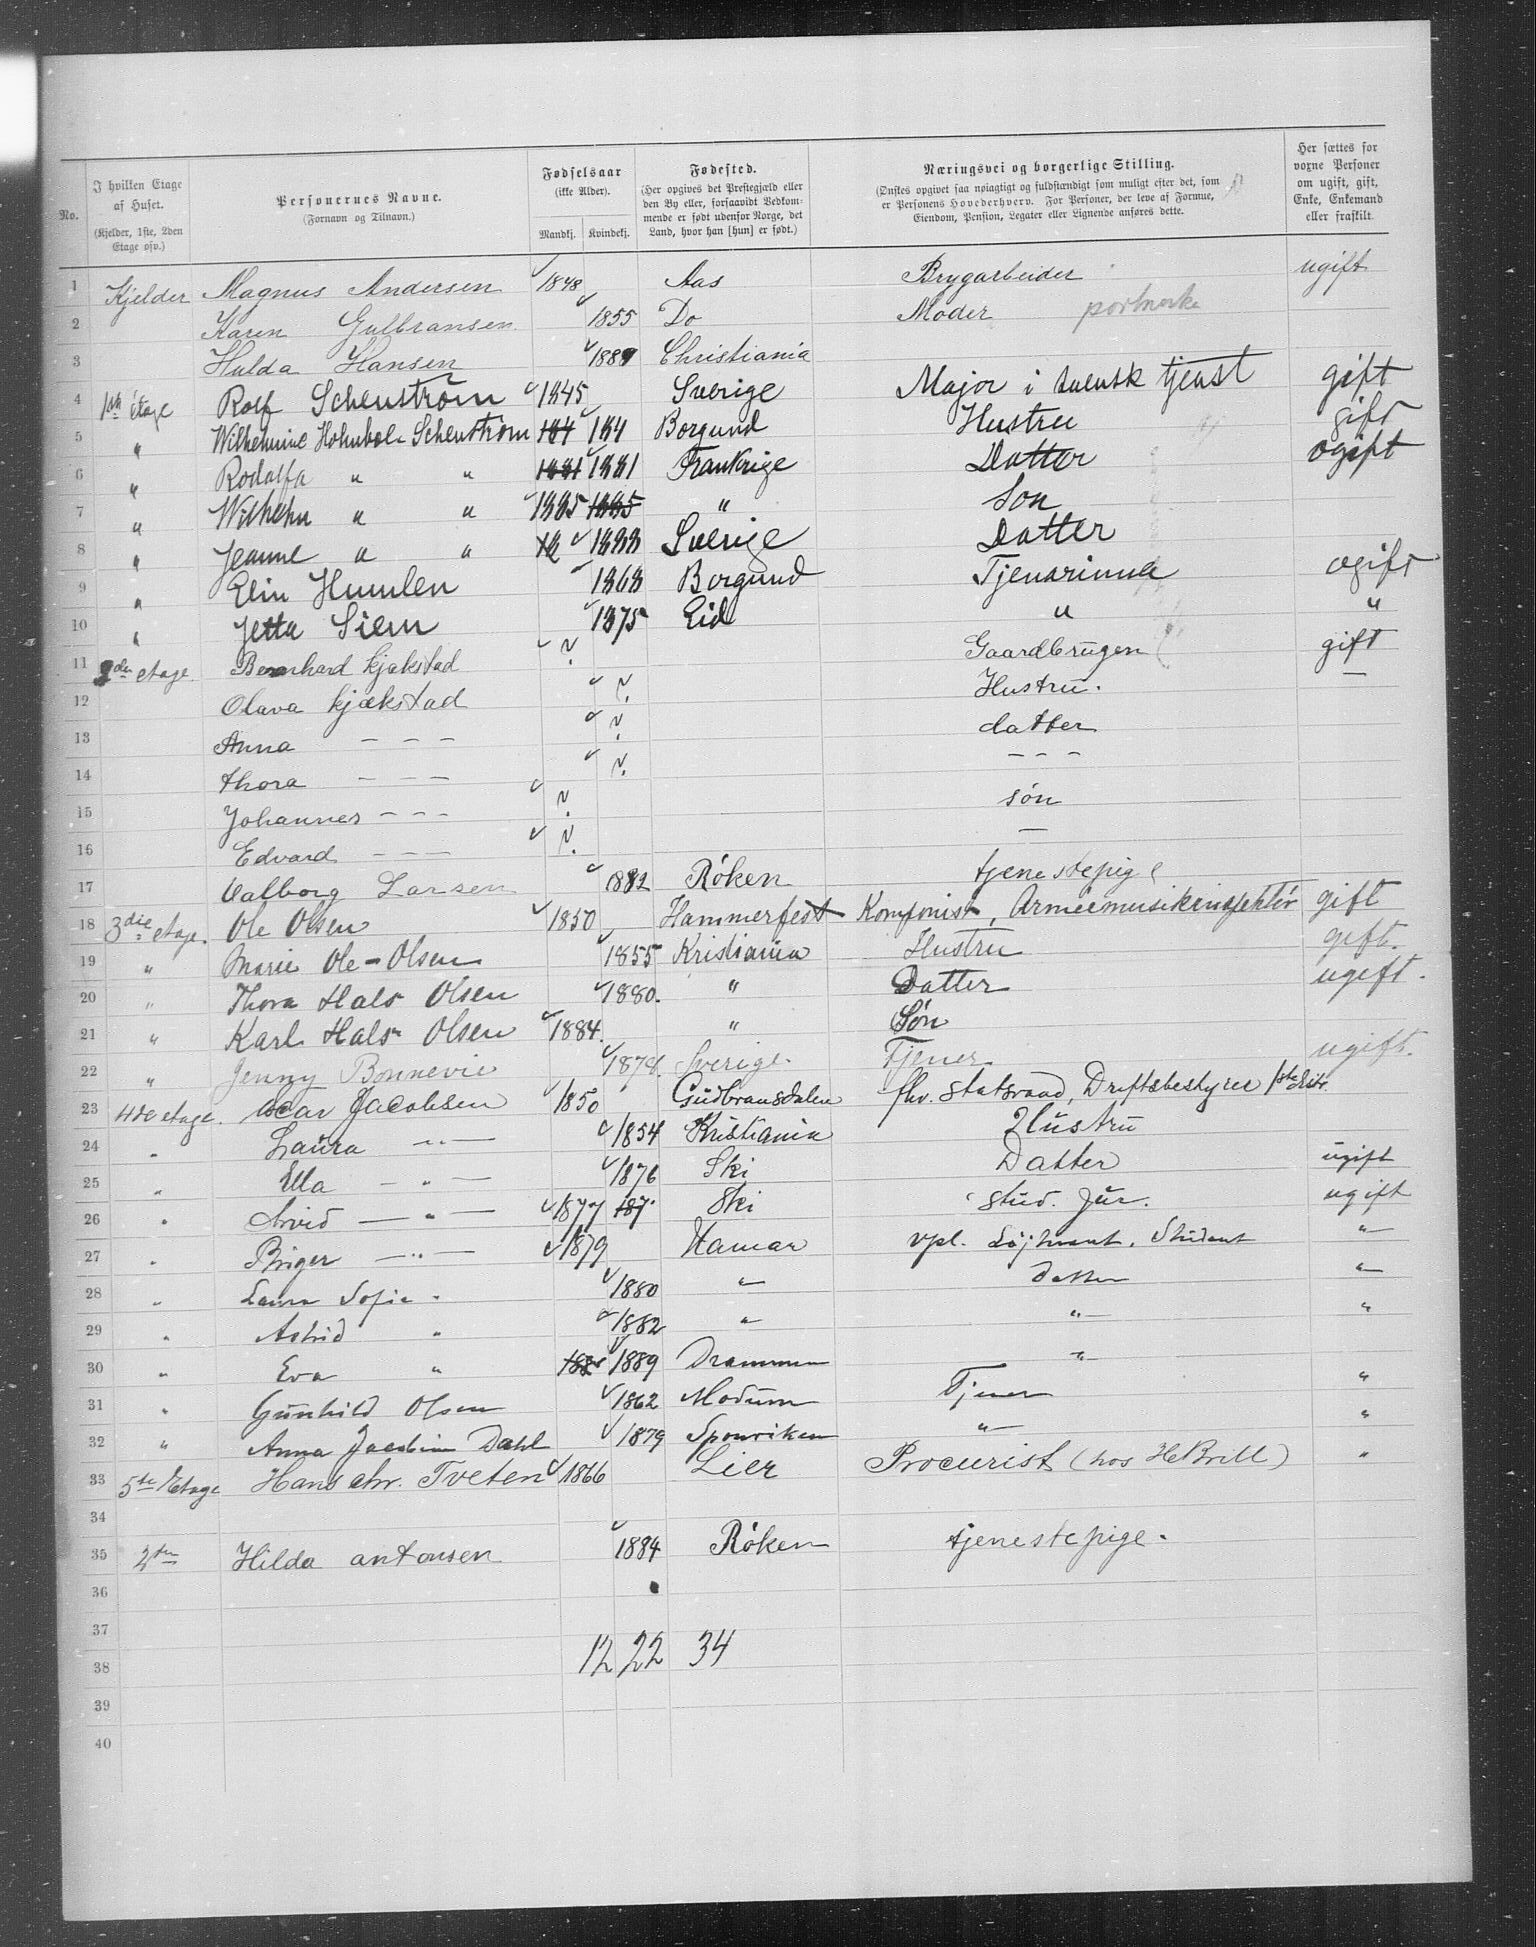 No.
I hvilken Etage af Huset. (Kjelder, 1ste, 2den Etage osv.)
Personernes Navne. (Fornavn og Tilnavn.)
Fødselsaar (ikke Alder). Mandkj. Kvindekj.
Fødested. (Her opgives det Prestegjæld eller den By eller, forsaavidt Vedkommende er født udenfor Norge, det Land, hvor han [hun] er født.)
Næringsvei og borgerlige Stilling. (Ønskes opgivet saa nøiagtigt og fuldstændigt som muligt efter det, som er Personens Hovederhverv. For Personer, der leve af Formue, Eiendom, Pension, Legater eller Lignende anføres dette.
Her sættes for voxne Personer om ugift, gift, Enke, Enkemand eller fraskilt.
1 Kjelder Magnus Andersen 1848 Aas Brygarbeider ugift
2 Karen Gulbransen 1855 Do Moder
3 Hulda Hansen 1889 Christiania
4 1ste Etage Rolf Schenström 1845 Sverige Major i svensk tjenst gift
5 " Wilhelmine Schenström 184 184 Borgund Hustru gift
6 " Rodolfa " " 1881 1881 Frankrige Datter ogift
7 " Wilhelm " " 1885 1885 " Son
8 " Jeanne " " 18 1888 Sverige Datter
9 " Elin Humlen 1868 Borgund Tjenarinna ogift
10 " Jetta Siem 1875 Eid " "
11 2den etage Bernhard Kjækstad ?. Gaardbrugen gift
12 Olava Kjækstad ?. Hustru. —
13 Anna — — — ?. datter
14 Thora — — — ?. — — —
15 Johannes — — — ?. søn
16 Edvard — — — ?. —
17 Valborg Larsen 1882 Røken tjenestepige
18 3die etage. Ole Olsen 1850 Hammerfest Komponist, Armeemusikinspektør gift
19 " Marie Ole-Olsen 1855 Kristiania Hustru gift.
20 " Thora Hals Olsen 1880. " Datter ugift.
21 " Karl Hals Olsen 1884. " Søn
22 " Jenny Bonnevie 1878. Sverige. Tjener ugift.
23 4de etage. Oscar Jacobsen 1850 Gudbransdalen fhv. statsraad, Driftsbestyrer
24 " Laura —"— 1854 Kristiania Hustru
25 " Ella —"— 1876 Ski Datter ugift
26 " Arvid —"— 1877 187 Ski stud. jur. ugift
27 " Birger —"— 1879 Hamar vpl. Løjtnant. Student "
28 " Laura Sofie " 1880 " Datter "
29 " Astrid " 1882 " " "
30 " Eva " 188 1889 Drammen "
31 " Gunhild Olsen 1862 Modum Tjener "
32 " Anna Jacobine Dahl 1879 " "
33 5te Etage Hans Chr. Tveten 1866 Lier Procurist (hos ) "
34
35 2den Hilda antonsen 1884 Røken tjenestepige.
36
37
38 12 22 34
39
40